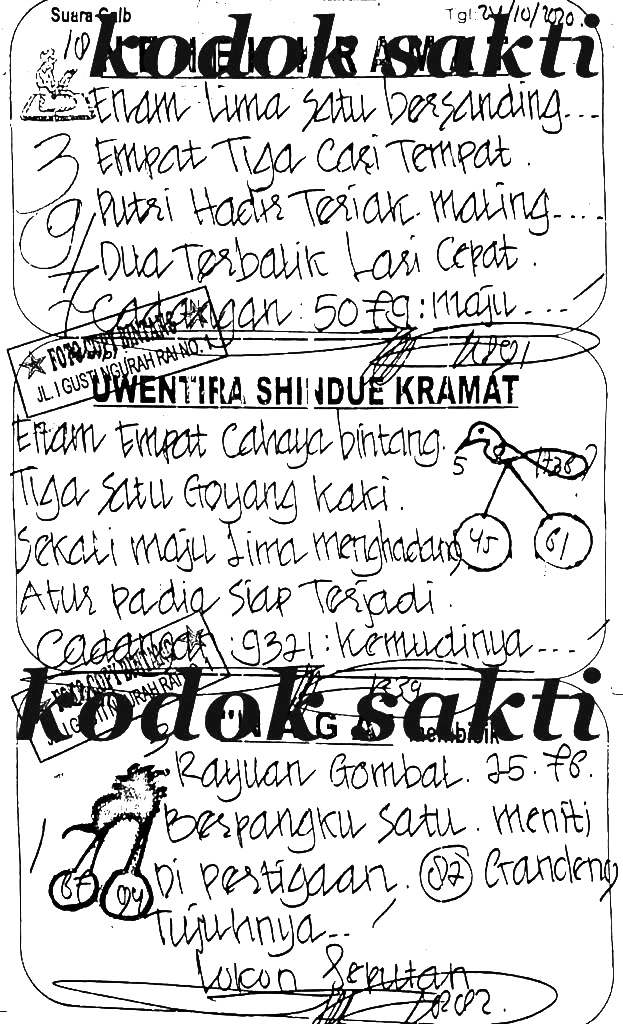 Suara Galb
Tgl: 24/10/2020.
kodok sakti
Enam Lima Satu bersanding....
3 Empat Tiga Cari Tempat.
9 Putri Hadir Teriak maling....
7 Dua Terbalik Lari Cepat.
7 Cadangan: 5079: maju....
FOTO COPY BINTANG
JL. I GUSTI NGURAH RAI NO. 1
UWENTIRA SHINDUE KRAMAT
Enam Empat Cahaya bintang.
5
Tiga Satu Goyang kaki.
Sekali maju Lima menghadang
45 61
Atur padia Siap Terjadi.
Cadangan: 9321: Kemudinya...
FOTO COPY BINTANG
kodok sakti
NAGA membisik
Rayuan Gombal. 25. 78.
Berpangku Satu. meniti
67 94
Di pertigaan. 82 Gandeng
Tujuhnya...
Lokon Seputan